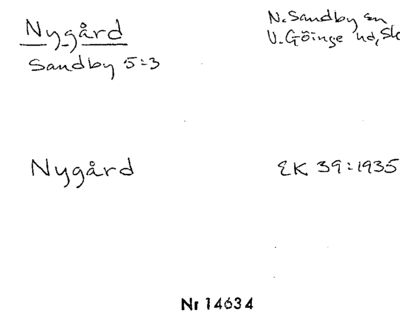 Nygård
N. Sandby sn
Sandby 5:3
V. Göinge hd, Sk
Nygård
EK 39:1935
Nr 14634